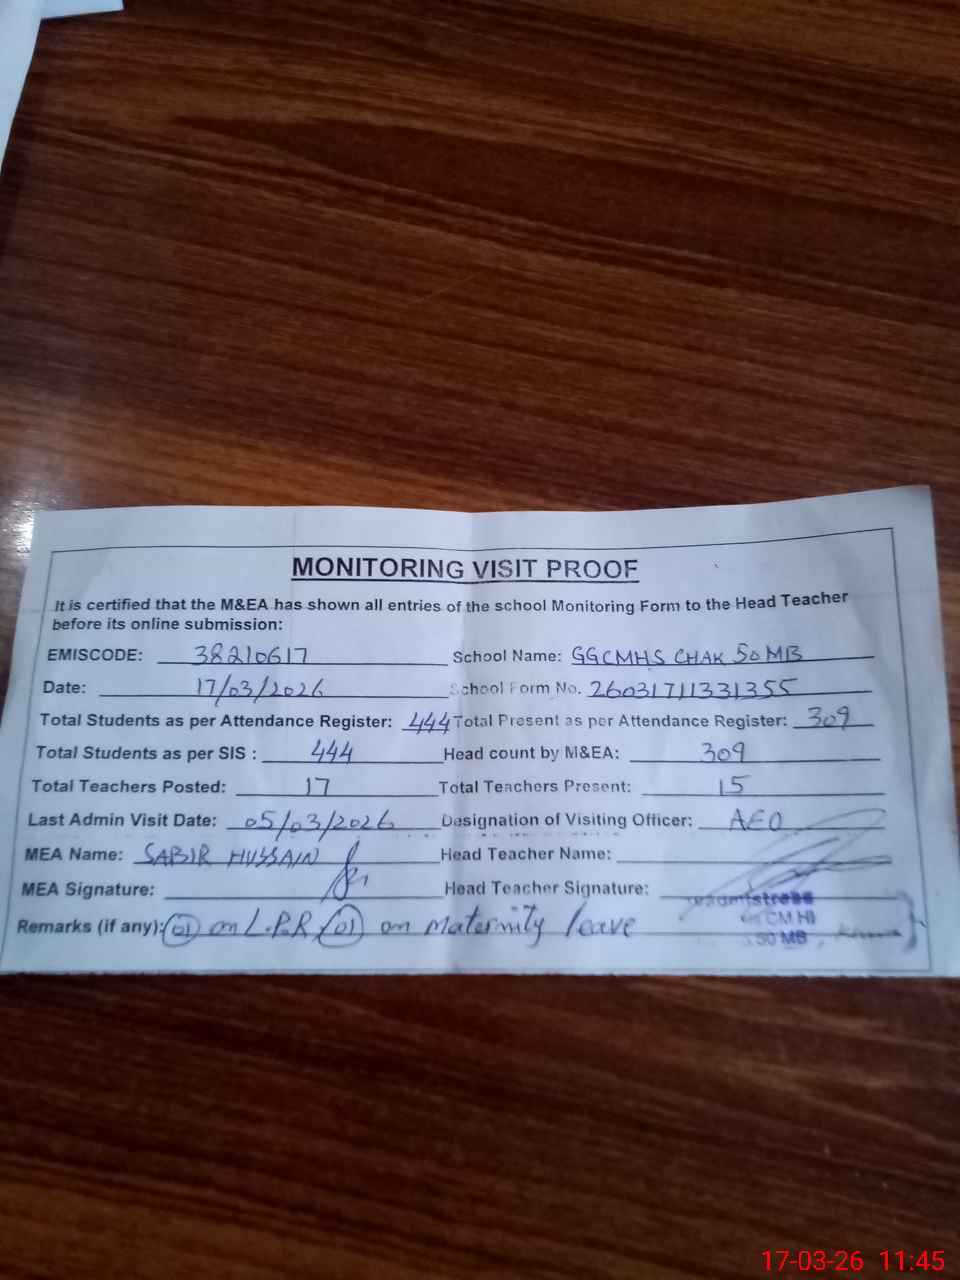 MONITORING VISIT PROOF
It is certified that the M&EA has shown all entries of the school Monitoring Form to the Head Teacher
before its online submission:
EMISCODE: 38210617 School Name: GGCMHS CHAK 50 MB
Date: 17/03/2026 School Form No. 26031711331355
Total Students as per Attendance Register: 444 Total Present as per Attendance Register: 309
Total Students as per SIS : 444 Head count by M&EA: 309
Total Teachers Posted: 17 Total Teachers Present: 15
Last Admin Visit Date: 05/03/2026 Designation of Visiting Officer: AEO
MEA Name: SABIR HUSSAIN Head Teacher Name:
MEA Signature: Head Teacher Signature:
Remarks (if any): 01 on L.P.R, 01 on maternity leave
CM HI
50 MB
17-03-26 11:45